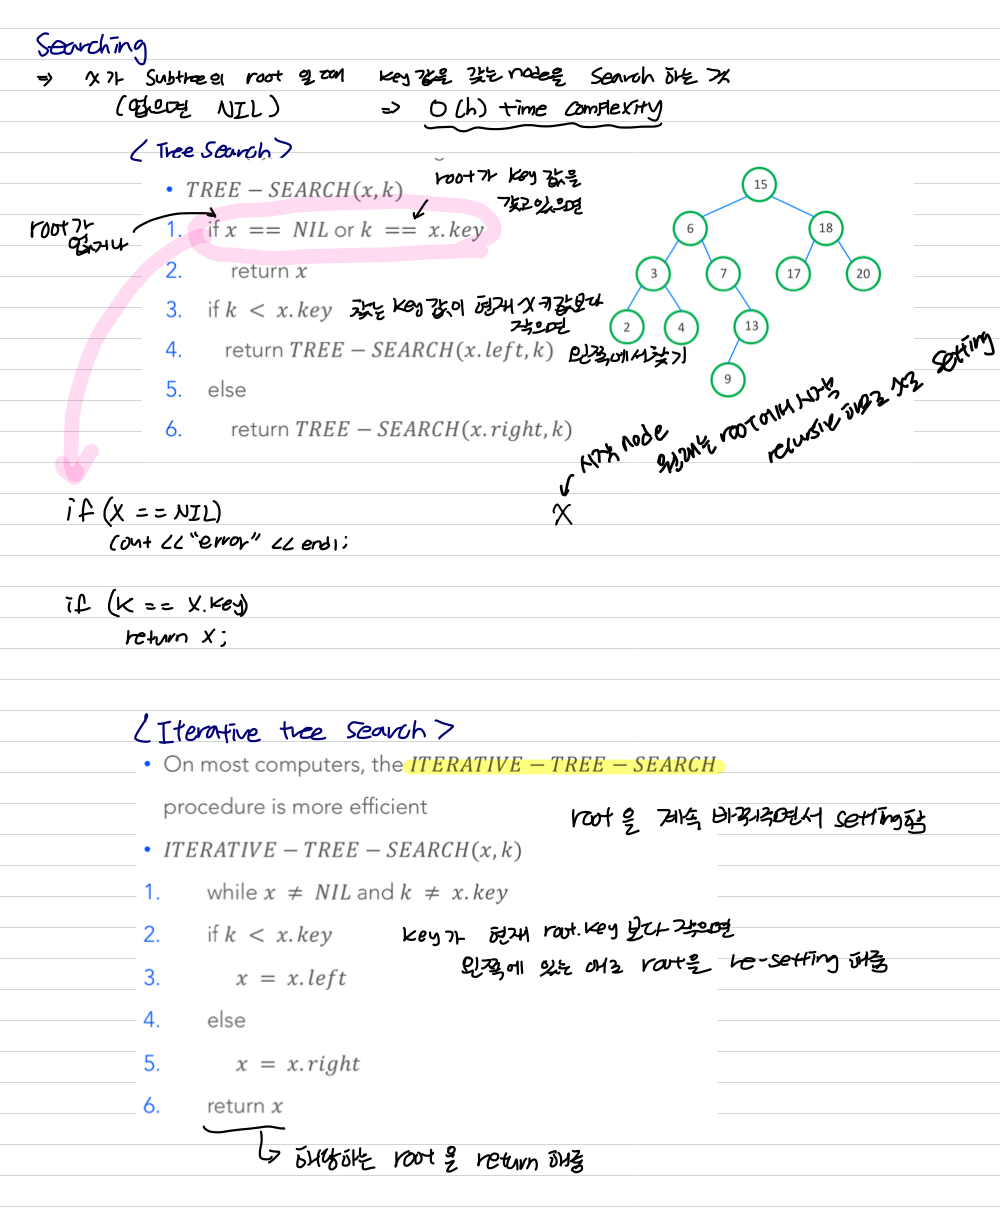 Searching
⇒ x가 Subtree의 root 일 때 key 값을 갖는 node을 Search 하는 것
(없으면 NIL) ⇒ O(h) time complexity
< Tree Search >
• TREE − SEARCH(x, k)
root가 key 값을
갖고있으면
root가
없거나
1. if x == NIL or k == x.key
2. return x
3. if k < x.key 찾는 key 값이 현재 x 키값보다
작으면
4. return TREE − SEARCH(x.left, k) 왼쪽에서 찾기
5. else
6. return TREE − SEARCH(x.right, k)
15
6 18
3 7 17 20
2 4 13
9
시작 node
원래는 root에서 시작
recursive 하므로 x로 setting
x
if (x == NIL)
cout << "error" << endl;
if (k == x.key)
return x;
< Iterative tree search >
• On most computers, the ITERATIVE − TREE − SEARCH
procedure is more efficient
root을 계속 바꿔주면서 setting함
• ITERATIVE − TREE − SEARCH(x, k)
1. while x ≠ NIL and k ≠ x.key
2. if k < x.key key가 현재 root.key 보다 작으면
왼쪽에 있는 애로 root을 re-setting 해줌
3. x = x.left
4. else
5. x = x.right
6. return x
해당하는 root을 return 해줌